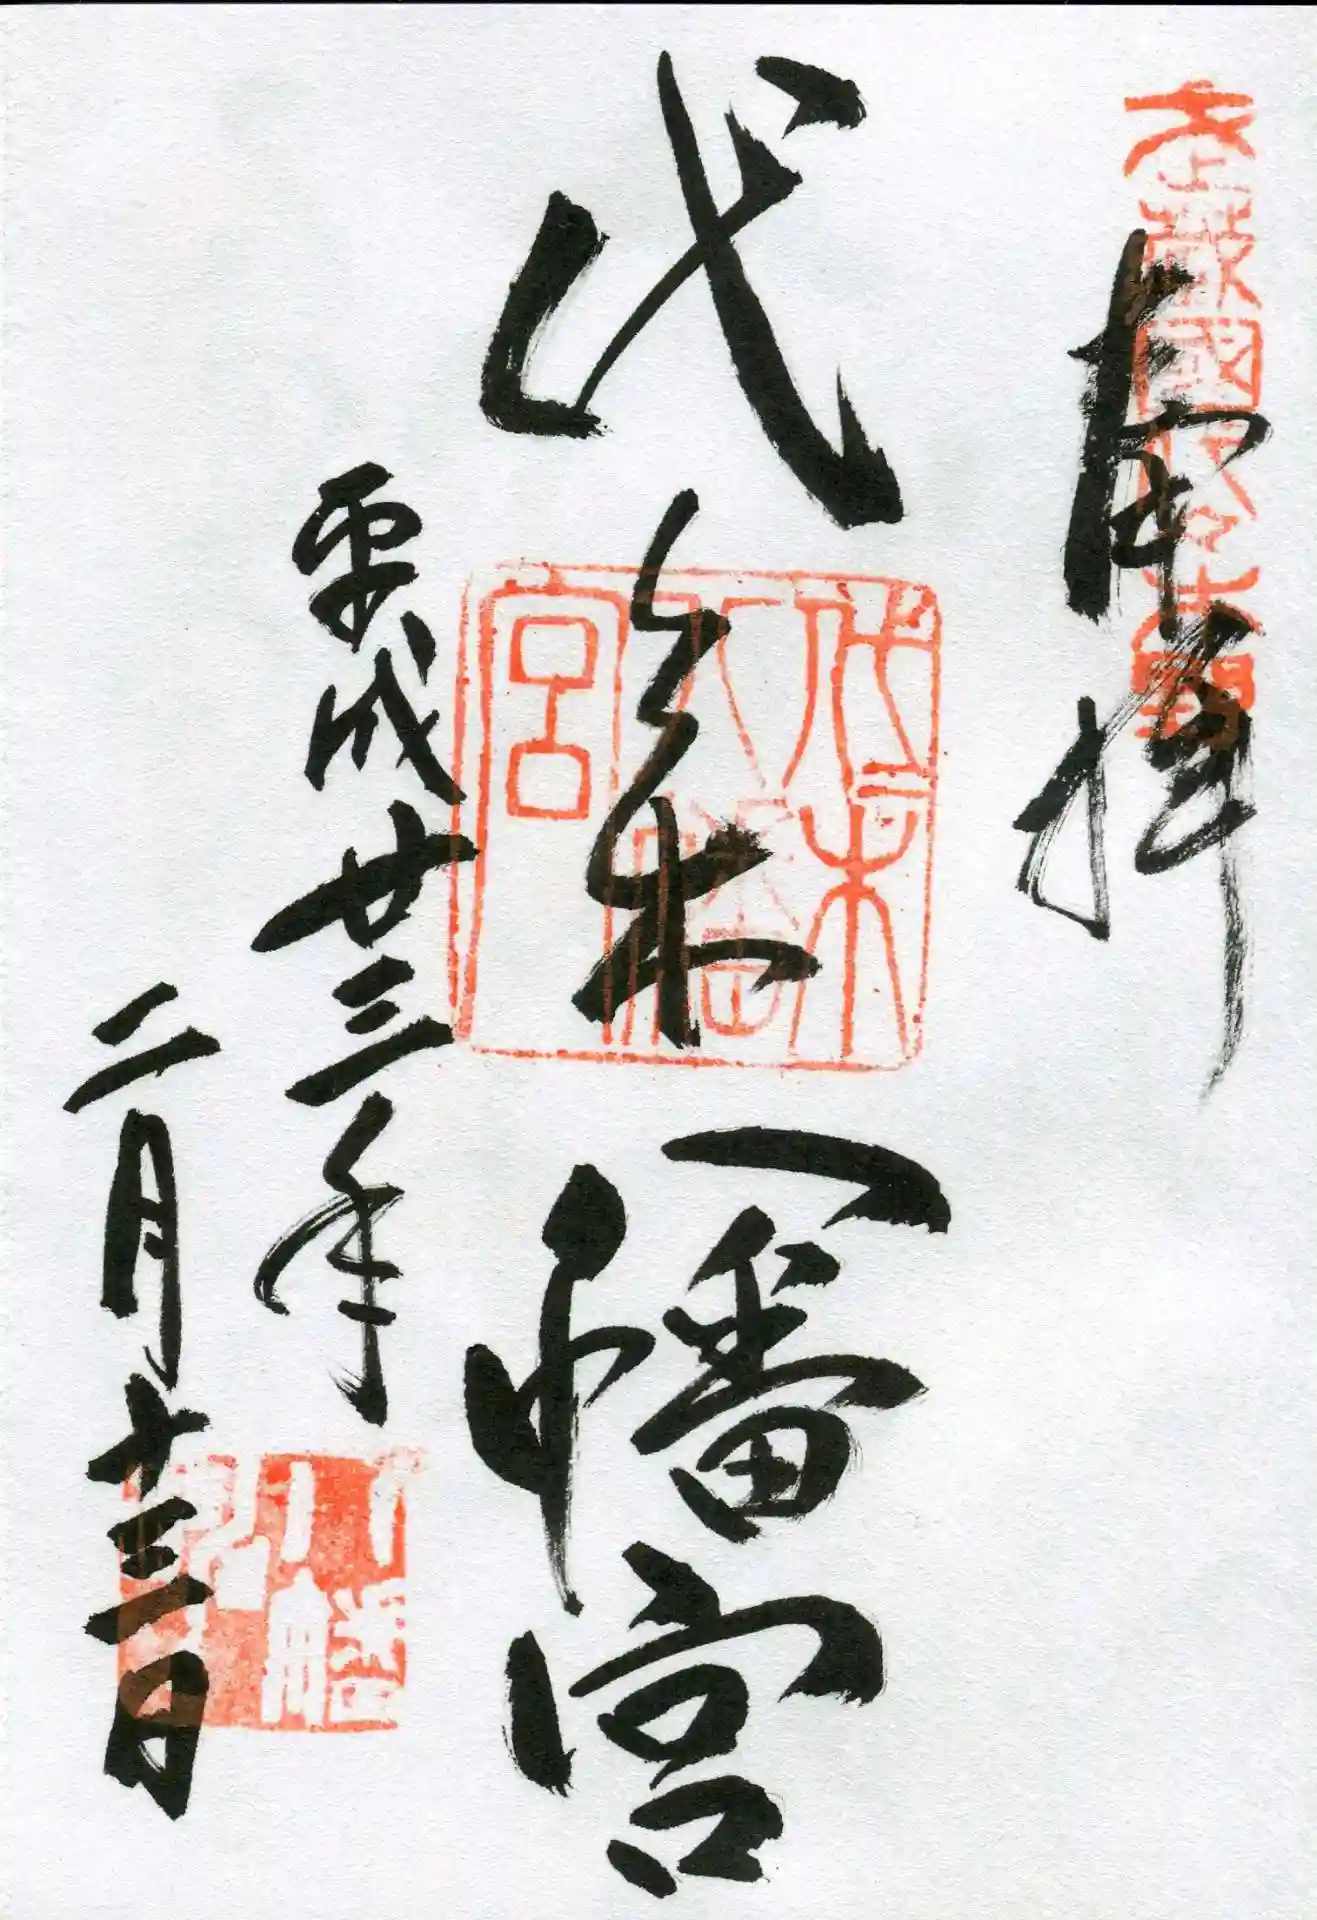 武蔵國代々木野
奉拝
代々木八幡宮
代々木
八幡
宮
平成廿三年
二月十三日